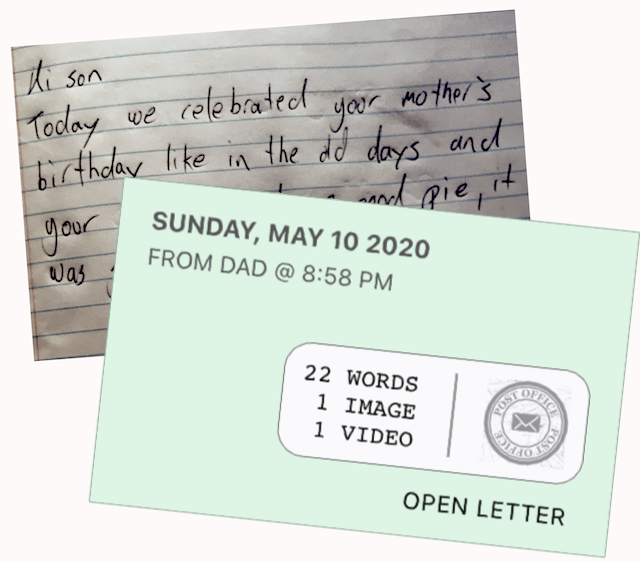 Hi son
Today we celebrated your mother's
birthday like in the old days and
your good pie, it
was
SUNDAY, MAY 10 2020
FROM DAD @ 8:58 PM
22 WORDS
1 IMAGE
1 VIDEO
POST OFFICE
POST OFFICE
OPEN LETTER